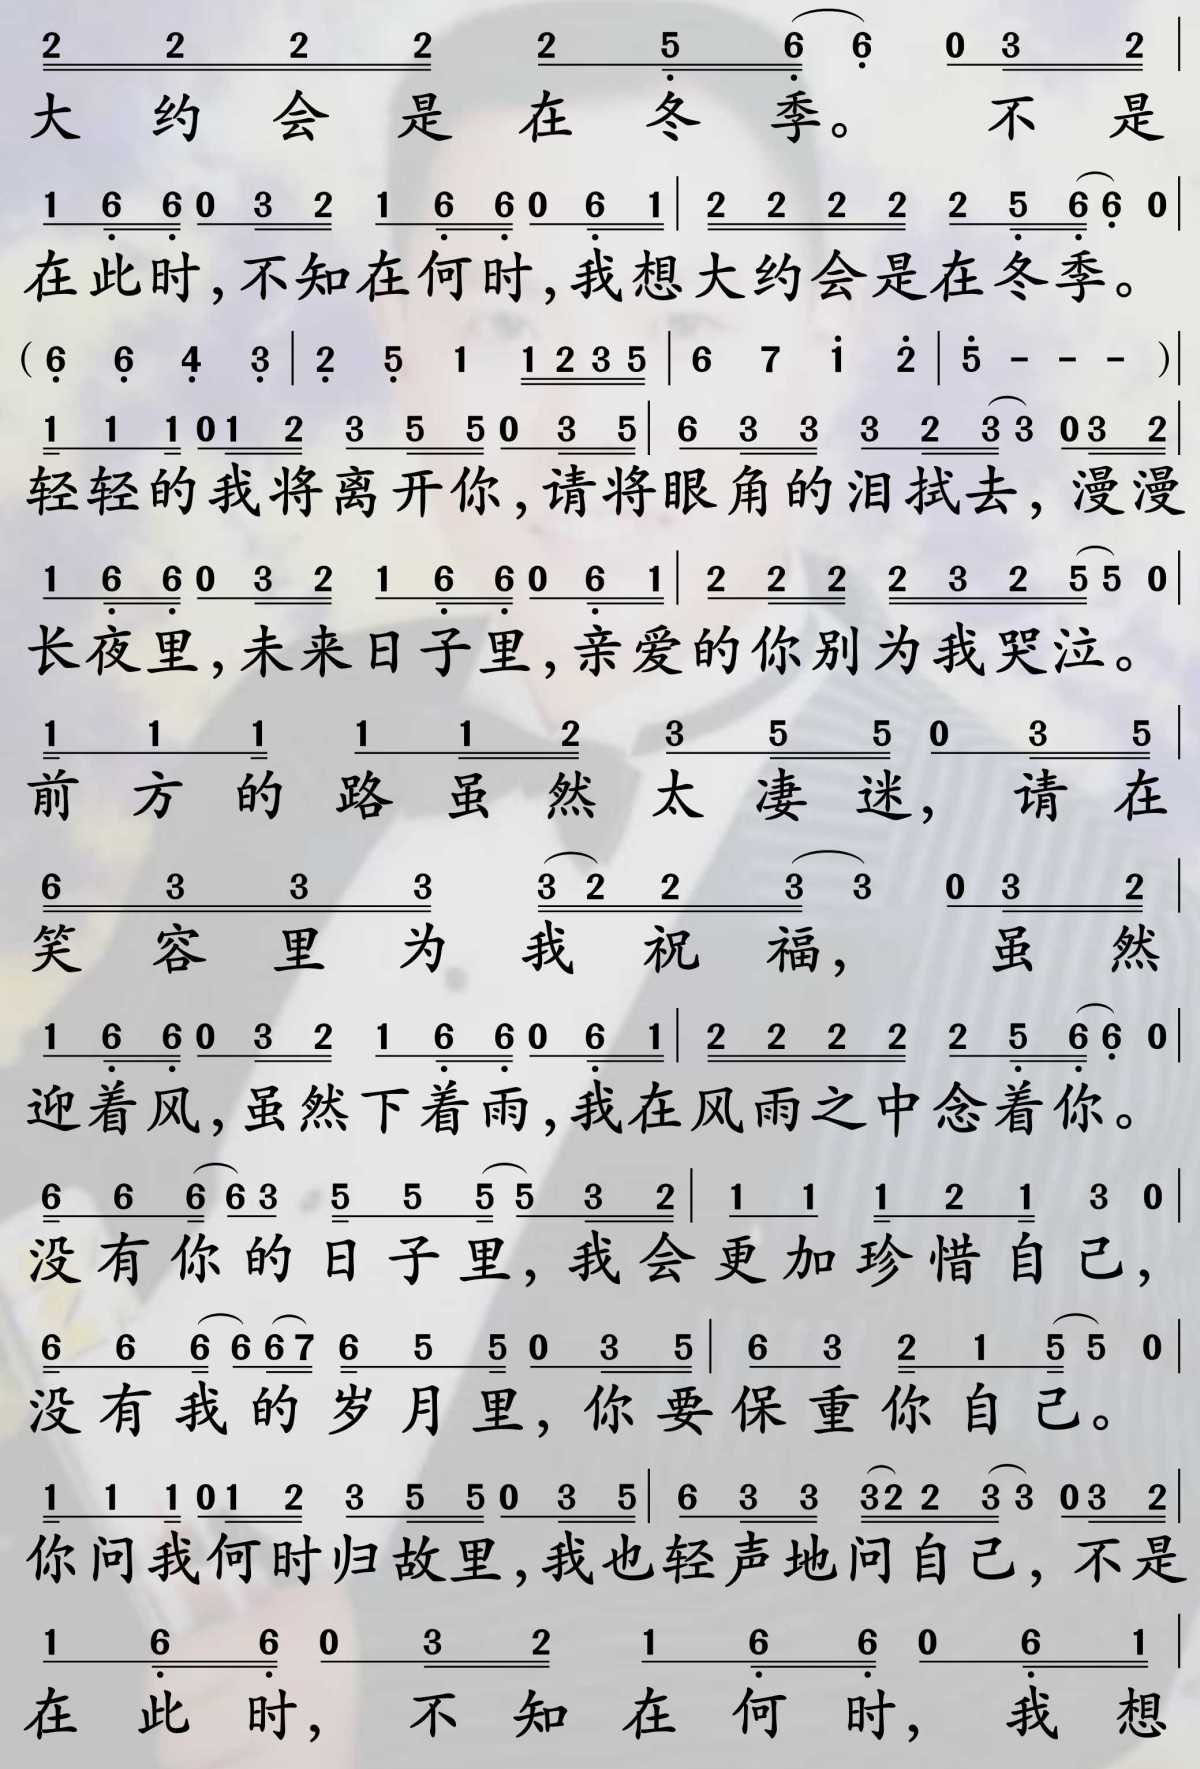 2 2 2 2 2 5 6 6 0 3 2
大约会是在冬季。 不是
1 6 6 0 3 2 1 6 6 0 6 1 | 2 2 2 2 2 5 6 6 0
在此时,不知在何时,我想大约会是在冬季。
( 6 6 4 3 | 2 5 1 1 2 3 5 | 6 7 1 2 | 5 - - - )
1 1 1 0 1 2 3 5 5 0 3 5 | 6 3 3 3 2 3 3 0 3 2
轻轻的我将离开你,请将眼角的泪拭去,漫漫
1 6 6 0 3 2 1 6 6 0 6 1 | 2 2 2 2 3 2 5 5 0
长夜里,未来日子里,亲爱的你别为我哭泣。
1 1 1 1 1 2 3 5 5 0 3 5
前方的路虽然太凄迷,请在
6 3 3 3 3 2 2 3 3 0 3 2
笑容里为我祝福, 虽然
1 6 6 0 3 2 1 6 6 0 6 1 | 2 2 2 2 2 5 6 6 0
迎着风,虽然下着雨,我在风雨之中念着你。
6 6 6 6 3 5 5 5 5 3 2 | 1 1 1 2 1 3 0
没有你的日子里,我会更加珍惜自己,
6 6 6 6 6 7 6 5 5 0 3 5 | 6 3 2 1 5 5 0
没有我的岁月里,你要保重你自己。
1 1 1 0 1 2 3 5 5 0 3 5 | 6 3 3 3 2 2 3 3 0 3 2
你问我何时归故里,我也轻声地问自己,不是
1 6 6 0 3 2 1 6 6 0 6 1
在此时,不知在何时,我想